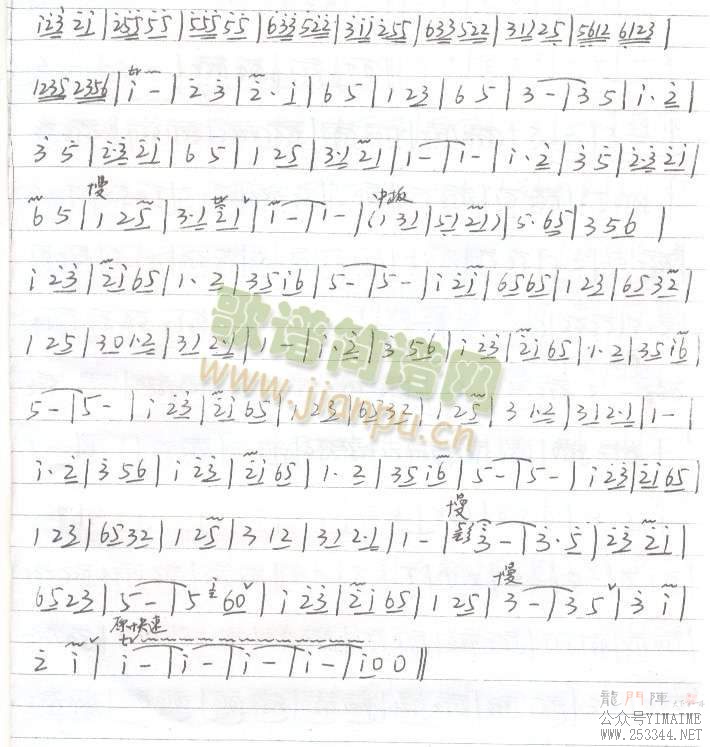 i̇ 2̇3̇ 2̇i̇ | 2̇5̇5̇ 5̇5̇ | 5̇5̇5̇ 5̇5̇ | 6̇3̇3̇ 5̇2̇2̇ | 3̇i̇i̇ 2̇55 | 633 522 | 3122 5 | 5612 6123 |
1235 2356 | i̇ - | 2̇ 3̇ | 2̇· i̇ | 6 5 | 1 23 | 6 5 | 3 - | 3 5 | i̇· 2̇ |
3̇ 5̇ | 2̇·3̇ 2̇i̇ | 6 5 | 1 25 | 3·1 21 | 1 - | 1 - | i̇· 2̇ | 3̇ 5̇ | 2̇·3̇ 2̇i̇ |
慢 中板
6 5 | 1 25 | 3·1 2̇i̇ | i - | 1 - | (1 31 | 51 21) | 5· 65 | 3 56 |
i̇ 2̇3̇ | 2̇i̇ 65 | 1· 2 | 35 i̇6 | 5 - | 5 - | i̇ 2̇i̇ | 65 65 | 1 23 | 65 32 |
1 25 | 30 1·2 | 31 2·1 | 1 - | i̇· 2̇ | 3̇ 56 | i̇ 2̇3̇ | 2̇i̇ 65 | 1· 2 | 35 i̇6 |
5 - | 5 - | i̇ 2̇3̇ | 2̇i̇ 65 | 1 23 | 65 32 | 1 25 | 3 1·2 | 31 2·1 | 1 - |
i̇· 2̇ | 3̇ 56 | i̇ 2̇3̇ | 2̇i̇ 65 | 1· 2 | 35 i̇6 | 5 - | 5 - | i̇ 2̇3̇ | 2̇i̇ 65 |
慢
1 23 | 65 32 | 1 25 | 3 12 | 31 2·1 | 1 - | 3̇ - | 3̇· 5̇ | 2̇3̇ 2̇i̇ |
慢
65 23 | 5 - | 5 60 | i̇ 2̇3̇ | 2̇i̇ 65 | 1 25 | 3 - | 3 5 | 3̇ i̇ |
原快速
2̇ i̇ | i̇ - | i̇ - | i̇ - | i̇ - | i̇ 0 0 ‖
歌谱简谱网
www.jianpu.cn
龍門陣
公众号YIMAIME
www.253344.NET